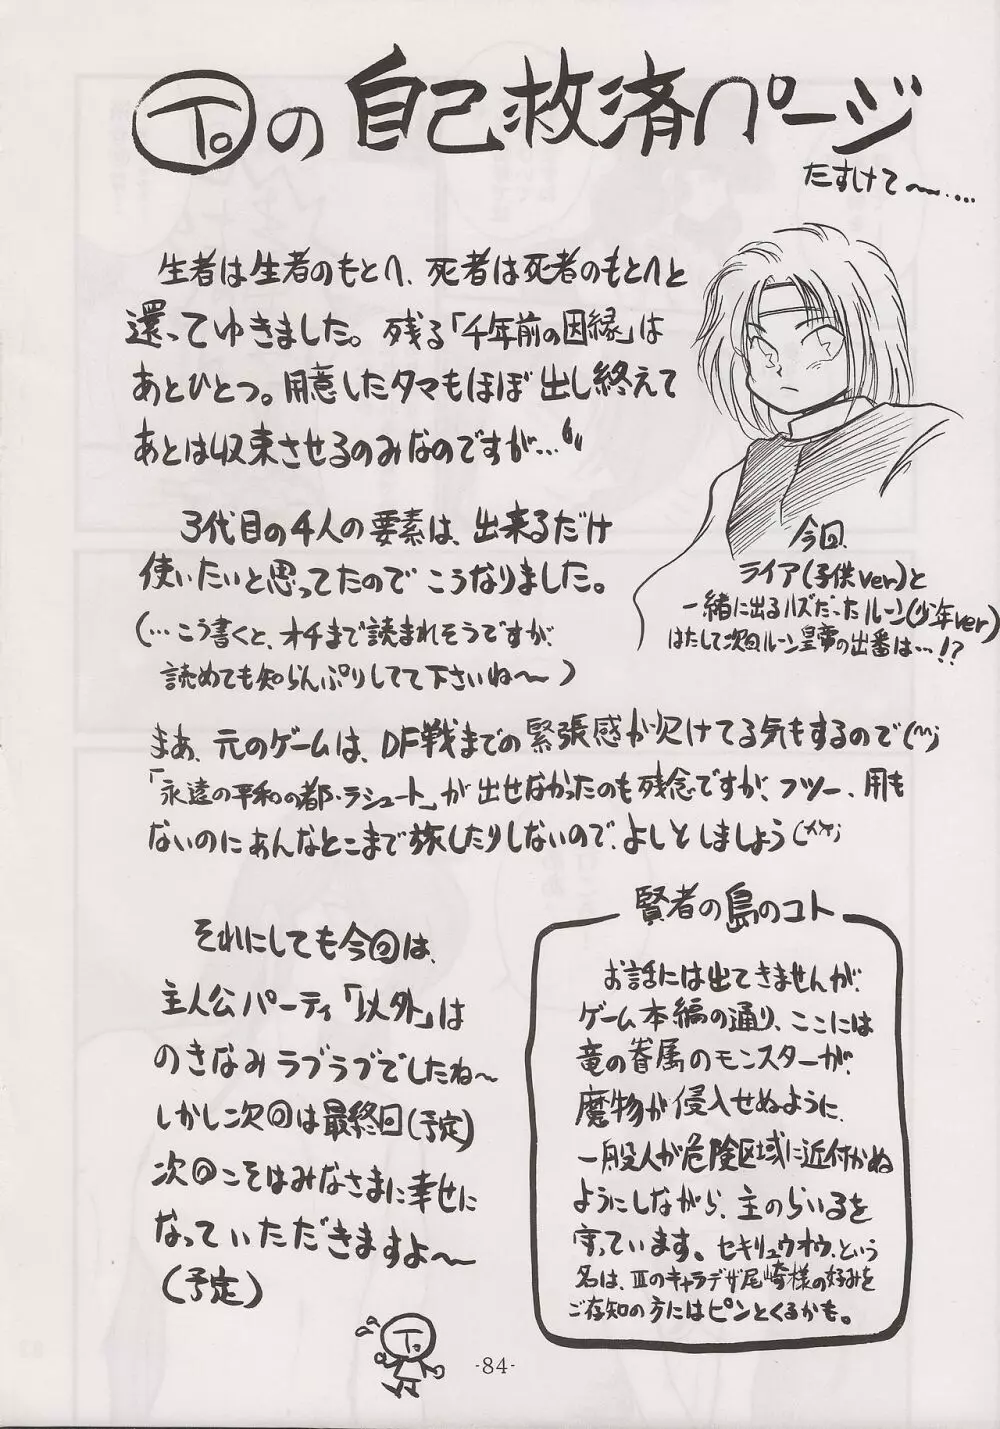 To の自己救済ページ
たすけて〜....
生者は生者のもとへ、死者は死者のもとへと
還ってゆきました。残る「千年前の因縁」は
あとひとつ。用意したタマもほぼ出し終えて
あとは収束させるのみなのですが…
3代目の4人の要素は、出来るだけ
使いたいと思ってたのでこうなりました。
(…こう書くと、オチまで読まれそうですが
読めても知らんぷりしてて下さいね〜)
今回、
ライア(子供ver)と
一緒に出るハズだったルーン(少年ver)
はたして次回ルーン皇帝の出番は…!?
まあ、元のゲームは、DF戦までの緊張感が欠けてる気もするので(^^;)
「永遠の平和の都・ラシュート」が出せなかったのも残念ですが、フツー、用も
ないのにあんなとこまで旅したりしないので、よしとしましょう(^^;)
それにしても今回は、
主人公パーティ「以外」は
のきなみラブラブでしたね〜
しかし次回は最終回(予定)
次回こそはみなさまに幸せに
なっていただきますよ〜
(予定)
賢者の島のコト
お話には出てきませんが、
ゲーム本編の通り、ここには
竜の眷属のモンスターが、
魔物が侵入せぬように、
一般人が危険区域に近付かぬ
ようにしながら、主のらいるを
守っています。セキリュウオウ、という
名は、IIIのキャラデザ尾崎様の好みを
ご存知の方にはピンとくるかも。
To
-84-